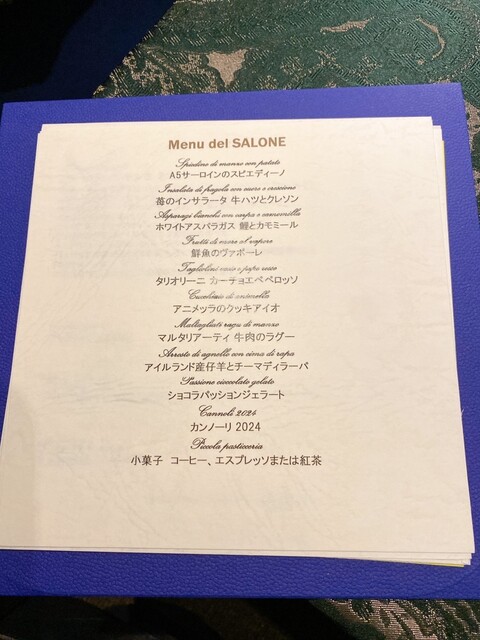 Menu del SALONE
Spiedino di manzo con patate
A5サーロインのスピエディーノ
Insalata di fragola con cuore e crescione
苺のインサラータ 牛ハツとクレソン
Asparagi bianchi con carpa e camomilla
ホワイトアスパラガス 鯉とカモミール
Frutti di mare al vapore
鮮魚のヴァポーレ
Tagliolini cacio e pepe
タリオリーニ カーチョエペペロッソ
Cucchiaio di animella
アニメッラのクッキアイオ
Maltagliati ragu di manzo
マルタリアーティ 牛肉のラグー
Arrosto di agnello con cima di rapa
アイルランド産仔羊とチーマディラーパ
Passione cioccolato gelato
ショコラパッションジェラート
Cannoli 2024
カンノーリ 2024
Piccola pasticceria
小菓子 コーヒー、エスプレッソまたは紅茶